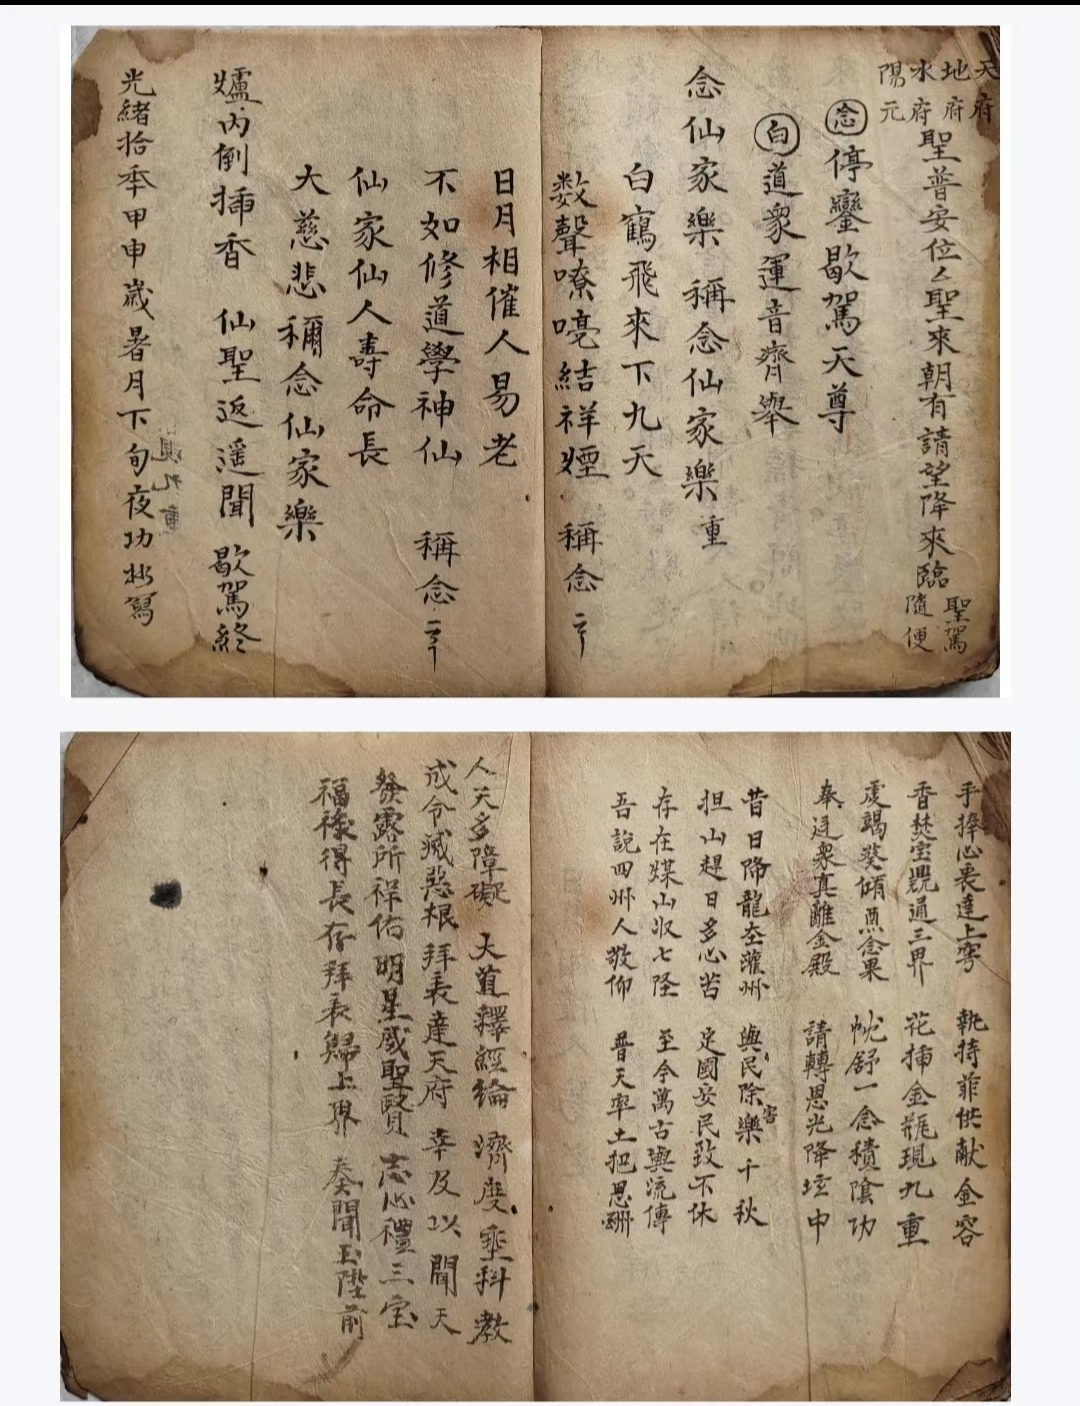 天府
地府
水府
陽元
聖普安位
聖來朝有請望降來臨
聖駕
隨便
念停鑾歇駕天尊
白道衆運音齊舉
念仙家樂 稱念仙家樂重
白鶴飛來下九天
数聲嘹喨結祥煙 稱念
日月相催人易老
不如修道學神仙 稱念
仙家仙人壽命長
大慈悲稱念仙家樂
爐內倒揷香 仙聖返遥聞 歇駕終
光緒拾年甲申歲暑月下旬夜功抄寫
手捧心表達上穹 執持菲供献金容
香焚宝鼎通三界 花揷金瓶現九重
虔竭葵傾 念果 忱舒一念積陰功
奉迓衆真離金殿 請轉恩光降坛中
昔日降龍在灌州 與民除害樂千秋
担山趕日多心苦 定國安民致不休
存在煤山收七怪 至今萬古輿流傳
吾說四州人敬仰 普天率土把恩酬
人天多障礙 大道釋經綸 濟度垂科教
式令滅惡根 拜表達天府 幸及以聞天
發露所祥佑 明星感聖賢 志心禮三宝
福祿得長存 拜表歸上界 奏聞玉陛前